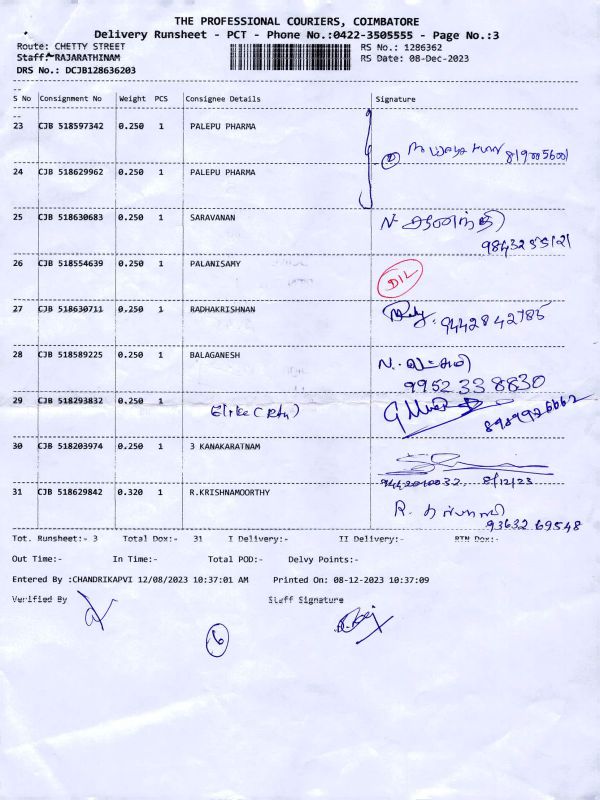 THE PROFESSIONAL COURIERS, COIMBATORE
Delivery Runsheet - PCT - Phone No.:0422-3505555 - Page No.:3
Route: CHETTY STREET RS No.: 1286362
Staff:-RAJARATHINAM RS Date: 08-Dec-2023
DRS No.: DCJB128636203
S No Consignment No Weight PCS Consignee Details Signature
23 CJB 518597342 0.250 1 PALEPU PHARMA
24 CJB 518629962 0.250 1 PALEPU PHARMA
25 CJB 518630683 0.250 1 SARAVANAN N.
26 CJB 518554639 0.250 1 PALANISAMY D/L
27 CJB 518630711 0.250 1 RADHAKRISHNAN 9442842785
28 CJB 518589225 0.250 1 BALAGANESH N.
9952338830
29 CJB 518293832 0.250 1
30 CJB 518203974 0.250 1 3 KANAKARATNAM
8/12/23
31 CJB 518629842 0.320 1 R.KRISHNAMOORTHY R.
93632 69548
Tot. Runsheet:- 3 Total Dox:- 31 I Delivery:- II Delivery:- RTN Dox:-
Out Time:- In Time:- Total POD:- Delvy Points:-
Entered By :CHANDRIKAPVI 12/08/2023 10:37:01 AM Printed On: 08-12-2023 10:37:09
Verified By Staff Signature
6